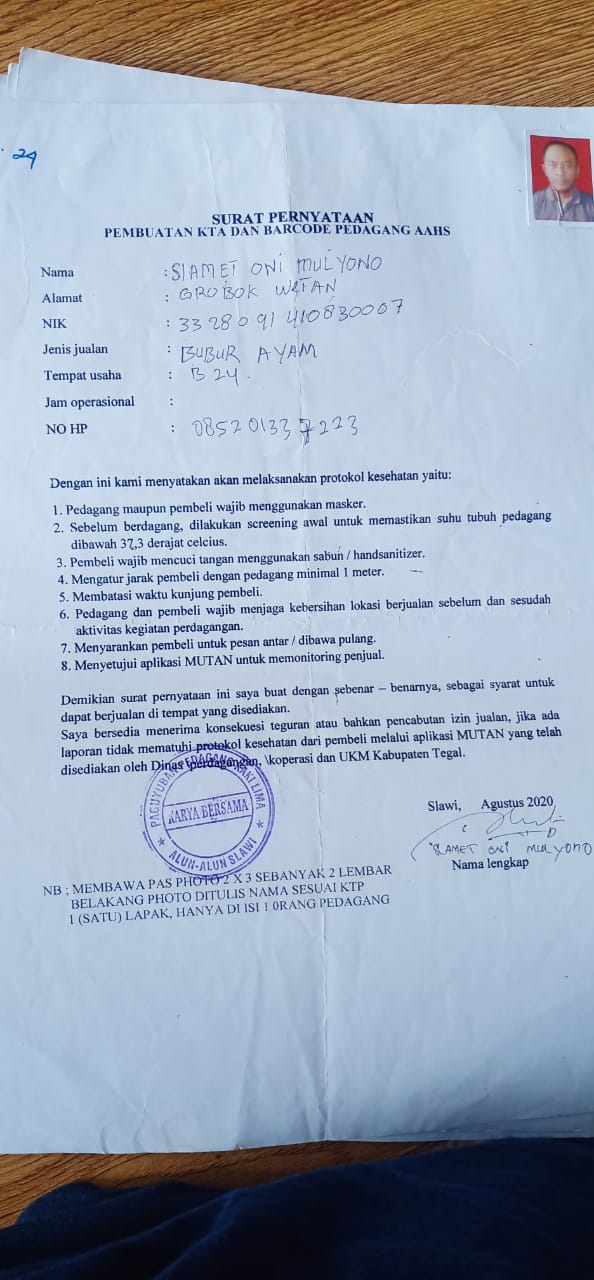 . 24
SURAT PERNYATAAN
PEMBUATAN KTA DAN BARCODE PEDAGANG AAHS
Nama : SLAMET ONI MULYONO
Alamat : GROBOK WETAN
NIK : 3328091410830007
Jenis jualan : BUBUR AYAM
Tempat usaha : B 24.
Jam operasional :
NO HP : 085201337223
Dengan ini kami menyatakan akan melaksanakan protokol kesehatan yaitu:
1. Pedagang maupun pembeli wajib menggunakan masker.
2. Sebelum berdagang, dilakukan screening awal untuk memastikan suhu tubuh pedagang
dibawah 37,3 derajat celcius.
3. Pembeli wajib mencuci tangan menggunakan sabun / handsanitizer.
4. Mengatur jarak pembeli dengan pedagang minimal 1 meter.
5. Membatasi waktu kunjung pembeli.
6. Pedagang dan pembeli wajib menjaga kebersihan lokasi berjualan sebelum dan sesudah
aktivitas kegiatan perdagangan.
7. Menyarankan pembeli untuk pesan antar / dibawa pulang.
8. Menyetujui aplikasi MUTAN untuk memonitoring penjual.
Demikian surat pernyataan ini saya buat dengan sebenar – benarnya, sebagai syarat untuk
dapat berjualan di tempat yang disediakan.
Saya bersedia menerima konsekuesi teguran atau bahkan pencabutan izin jualan, jika ada
laporan tidak mematuhi protokol kesehatan dari pembeli melalui aplikasi MUTAN yang telah
disediakan oleh Dinas \perdagangan, \koperasi dan UKM Kabupaten Tegal.
PAGUYUBAN PEDAGANG KAKI LIMA
KARYA BERSAMA
ALUN-ALUN SLAWI
Slawi, Agustus 2020
SLAMET ONI MULYONO
Nama lengkap
NB ; MEMBAWA PAS PHOTO 2 X 3 SEBANYAK 2 LEMBAR
BELAKANG PHOTO DITULIS NAMA SESUAI KTP
1 (SATU) LAPAK, HANYA DI ISI 1 0RANG PEDAGANG